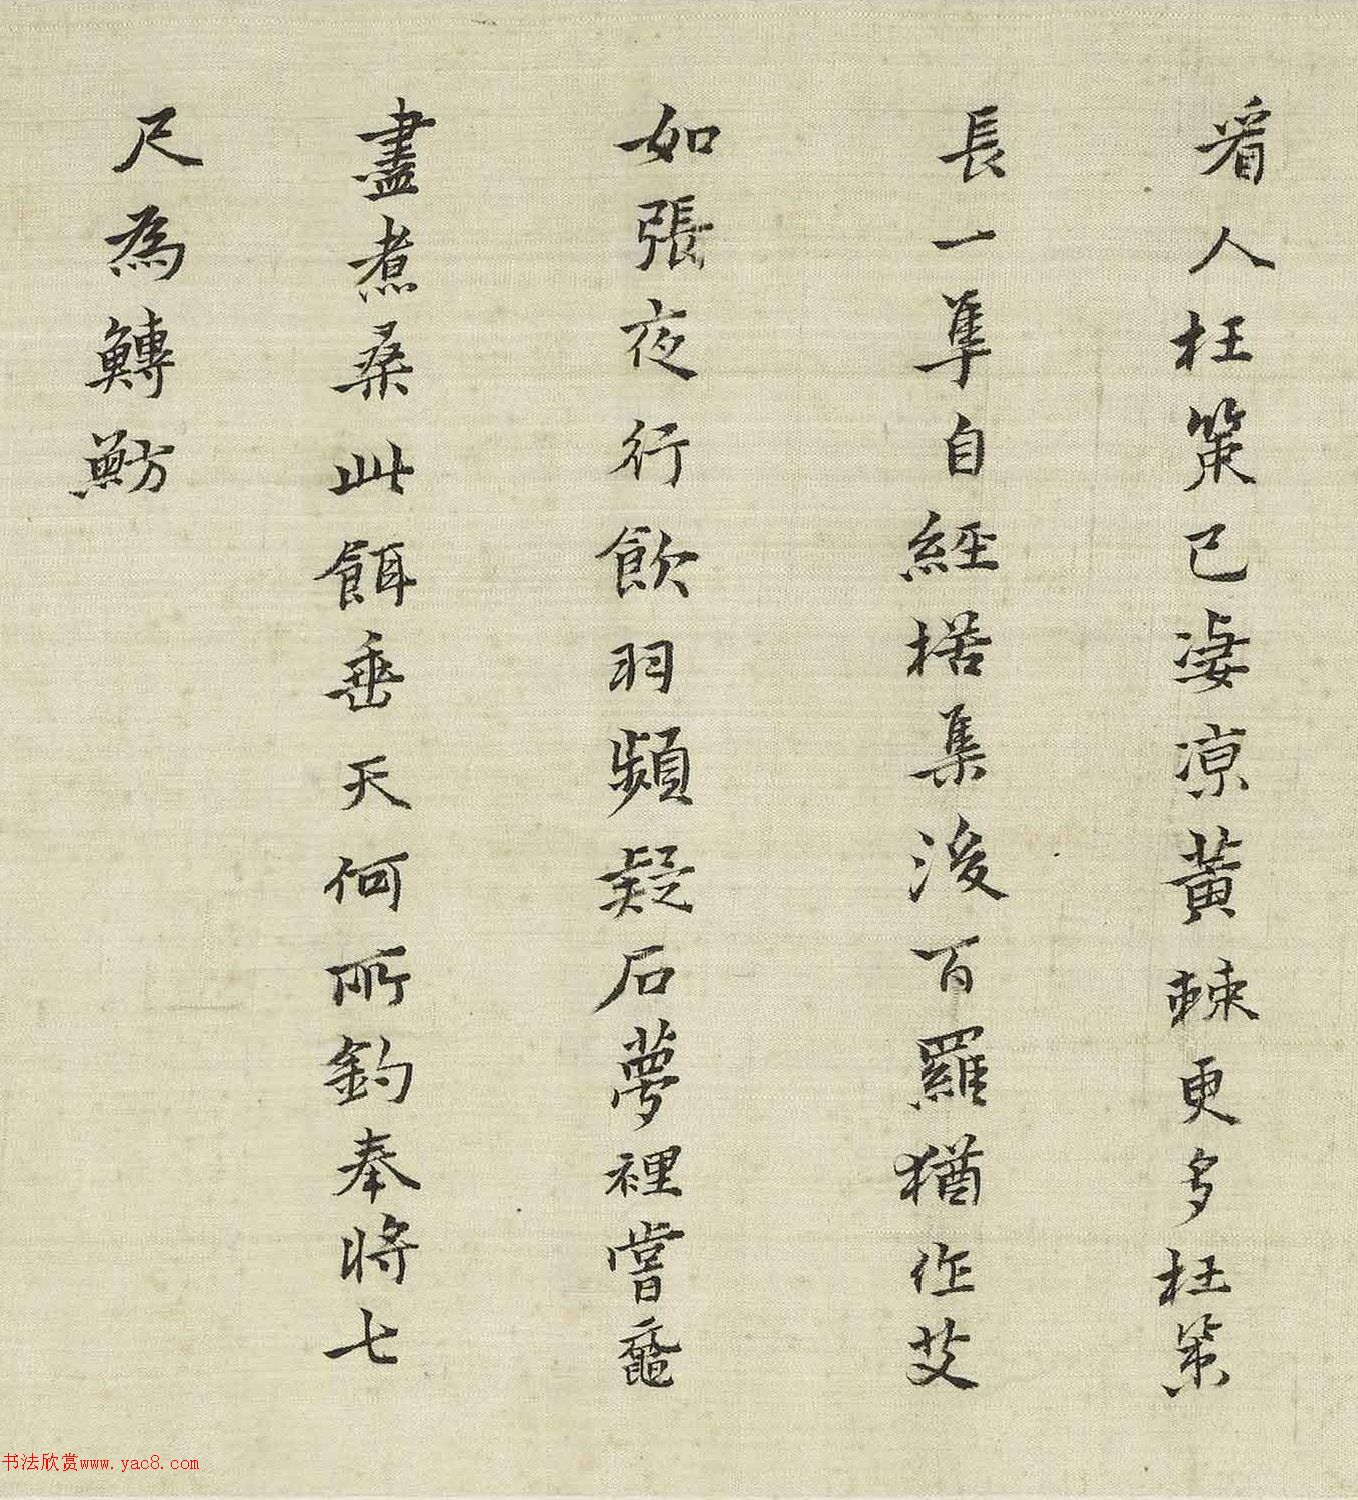 看人枉策已淒涼黃棘更多枉策
長一隼自經楛集後百羅猶作艾
如張夜行飲羽頻疑石夢裡嘗黿
盡煮桑此餌垂天何所釣奉將七
尺為鱄魴
书法欣赏www.yac8.com